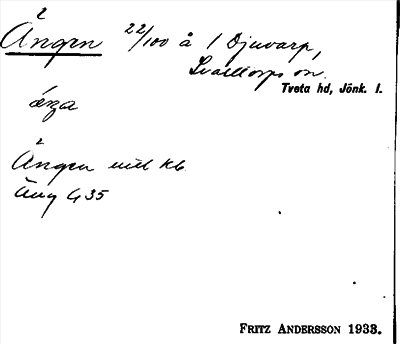 2
Ängen 22/100 å 1 Djuvarp,
Svalltorps sn.
Tveta hd, Jönk. l.
äŋa
2
Ängen
Äng G 35
FRITZ ANDERSSON 1933.